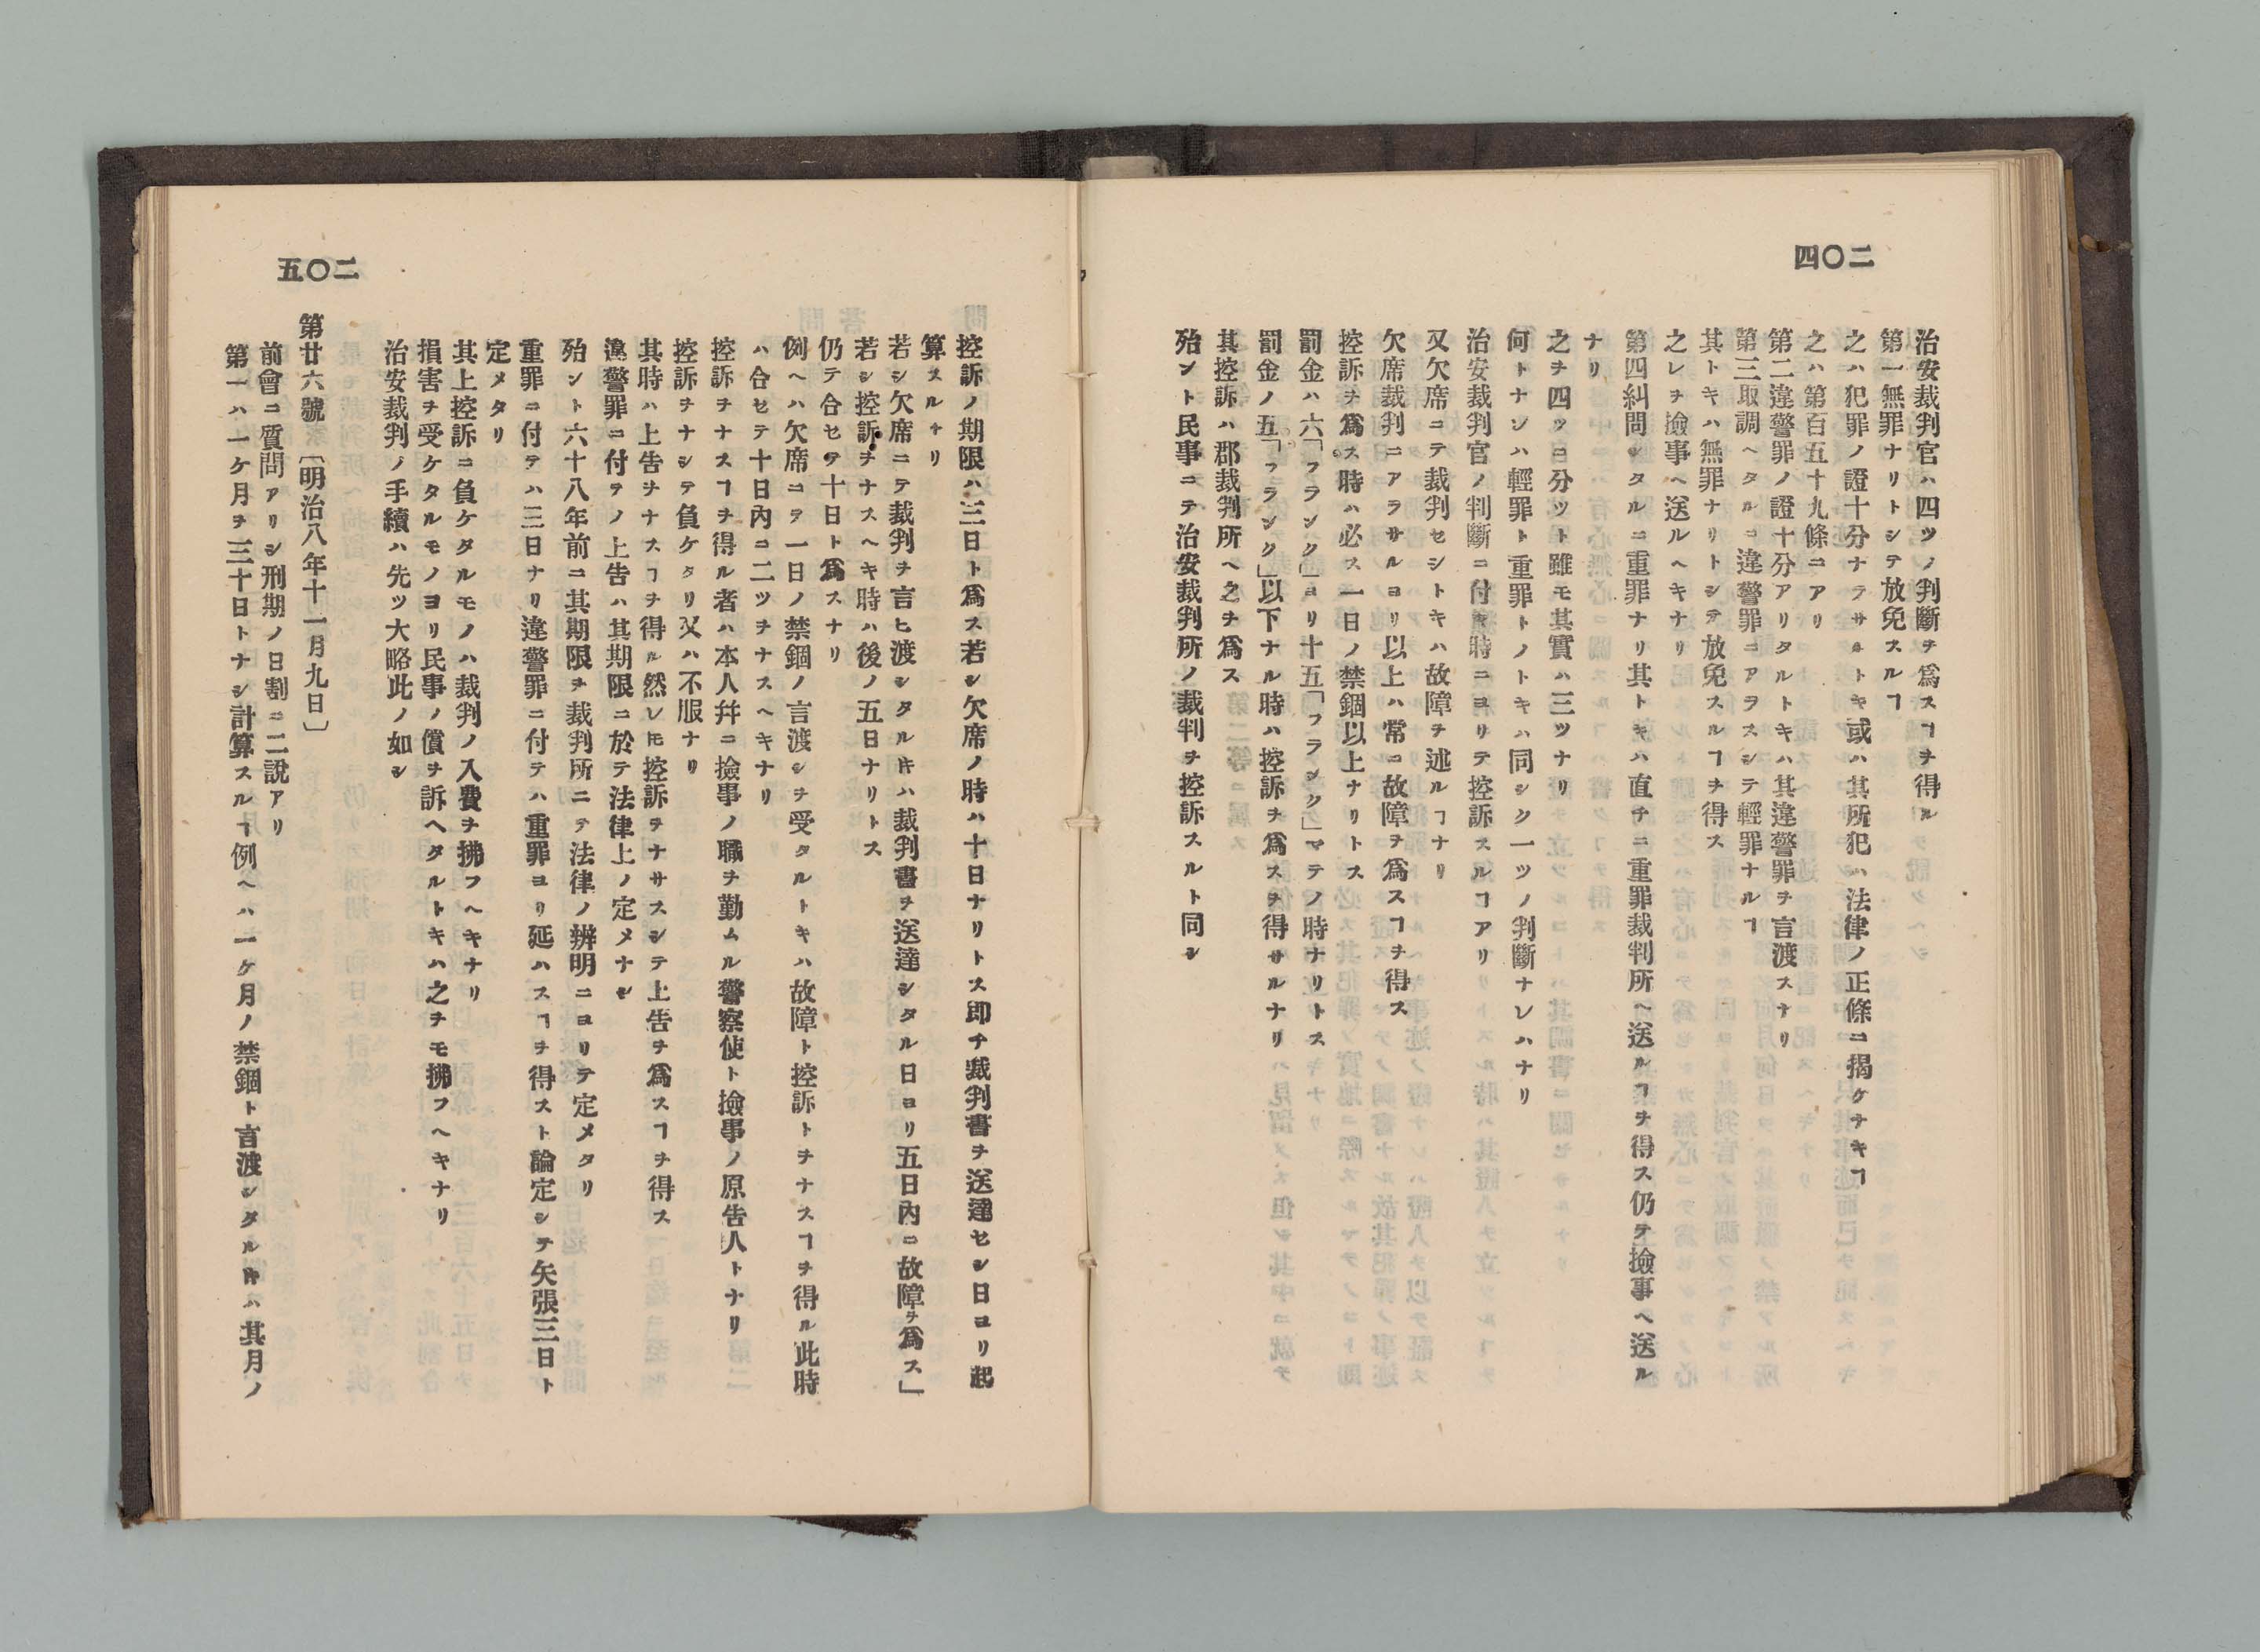 二〇四
治安裁判官ハ四ツノ判斷ヲ爲スヿヲ得ル
第一無罪ナリトシテ放免スルヿ
之ハ犯罪ノ證十分ナラサルトキ或ハ其所犯ハ法律ノ正條ニ揭ケナキヿ
之ハ第百五十九條ニアリ
第二違警罪ノ證十分アリタルトキハ其違警罪ヲ言渡スナリ
第三取調ヘタルニ違警罪ニアラスシテ輕罪ナルヿ
其トキハ無罪ナリトシテ放免スルヿヲ得ス
之レヲ撿事ヘ送ルヘキナリ
第四糾問シタルニ重罪ナリ其トキハ直チニ重罪裁判所ヘ送ルヿヲ得ス仍テ撿事ヘ送ル
ナリ
之ヲ四ツニ分ツト雖モ其實ハ三ツナリ
何トナレハ輕罪ト重罪トノトキハ同シク一ツノ判斷ナレハナリ
治安裁判官ノ判斷ニ付キ時ニヨリテ控訴スルヿアリ
又欠席ニテ裁判セシトキハ故障ヲ述ルヿナリ
欠席裁判ニアラサルヨリ以上ハ常ニ故障ヲ爲スヿヲ得ス
控訴ヲ爲ス時ハ必ス一日ノ禁錮以上ナリトス
罰金ハ六「フランク」ヨリ十五「フランク」マテノ時ナリトス
罰金ノ五「フランク」以下ナル時ハ控訴ヲ爲スヲ得サルナリ
其控訴ハ郡裁判所ヘ之ヲ爲ス
殆ント民事ニテ治安裁判所ノ裁判ヲ控訴スルト同シ
二〇五
控訴ノ期限ハ三日ト爲ス若シ欠席ノ時ハ十日ナリトス即チ裁判書ヲ送達セシ日ヨリ起
算スルナリ
若シ欠席ニテ裁判ヲ言ヒ渡シタルキハ裁判書ヲ送達シタル日ヨリ五日內ニ故障ヲ爲ス」
若シ控訴ヲナスヘキ時ハ後ノ五日ナリトス
仍テ合セテ十日ト爲スナリ
例ヘハ欠席ニヲ一日ノ禁錮ノ言渡シヲ受タルトキハ故障ト控訴トヲナスヿヲ得ル此時
ハ合セテ十日內ニ二ツヲナスヘキナリ
控訴ヲナスヿヲ得ル者ハ本人幷ニ撿事ノ職ヲ勤ムル警察使ト撿事ノ原告人トナリ
控訴ヲナシテ負ケタリ又ハ不服ナリ
其時ハ上告ヲナスヿヲ得ル然レ𪜈控訴ヲナサスシテ上告ヲ爲スヿヲ得ス
違警罪ニ付テノ上告ハ其期限ニ於テ法律上ノ定メナシ
殆ント六十八年前ニ其期限ヲ裁判所ニテ法律ノ辨明ニヨリテ定メタリ
重罪ニ付テハ三日ナリ違警罪ニ付テハ重罪ヨリ延ハスヿヲ得スト論定シテ矢張三日ト
定メタリ
其上控訴ニ負ケタルモノハ裁判ノ入費ヲ拂フヘキナリ
損害ヲ受ケタルモノヨリ民事ノ償ヲ訴ヘタルトキハ之ヲモ拂フヘキナリ
治安裁判ノ手續ハ先ツ大略此ノ如シ
第廿六號〔明治八年十一月九日〕
前會ニ質問アリシ刑期ノ日割ニ二說アリ
第一ハ一ケ月ヲ三十日トナシ計算スルヿ例ヘハ一ケ月ノ禁錮ト言渡シタルキハ其月ノ